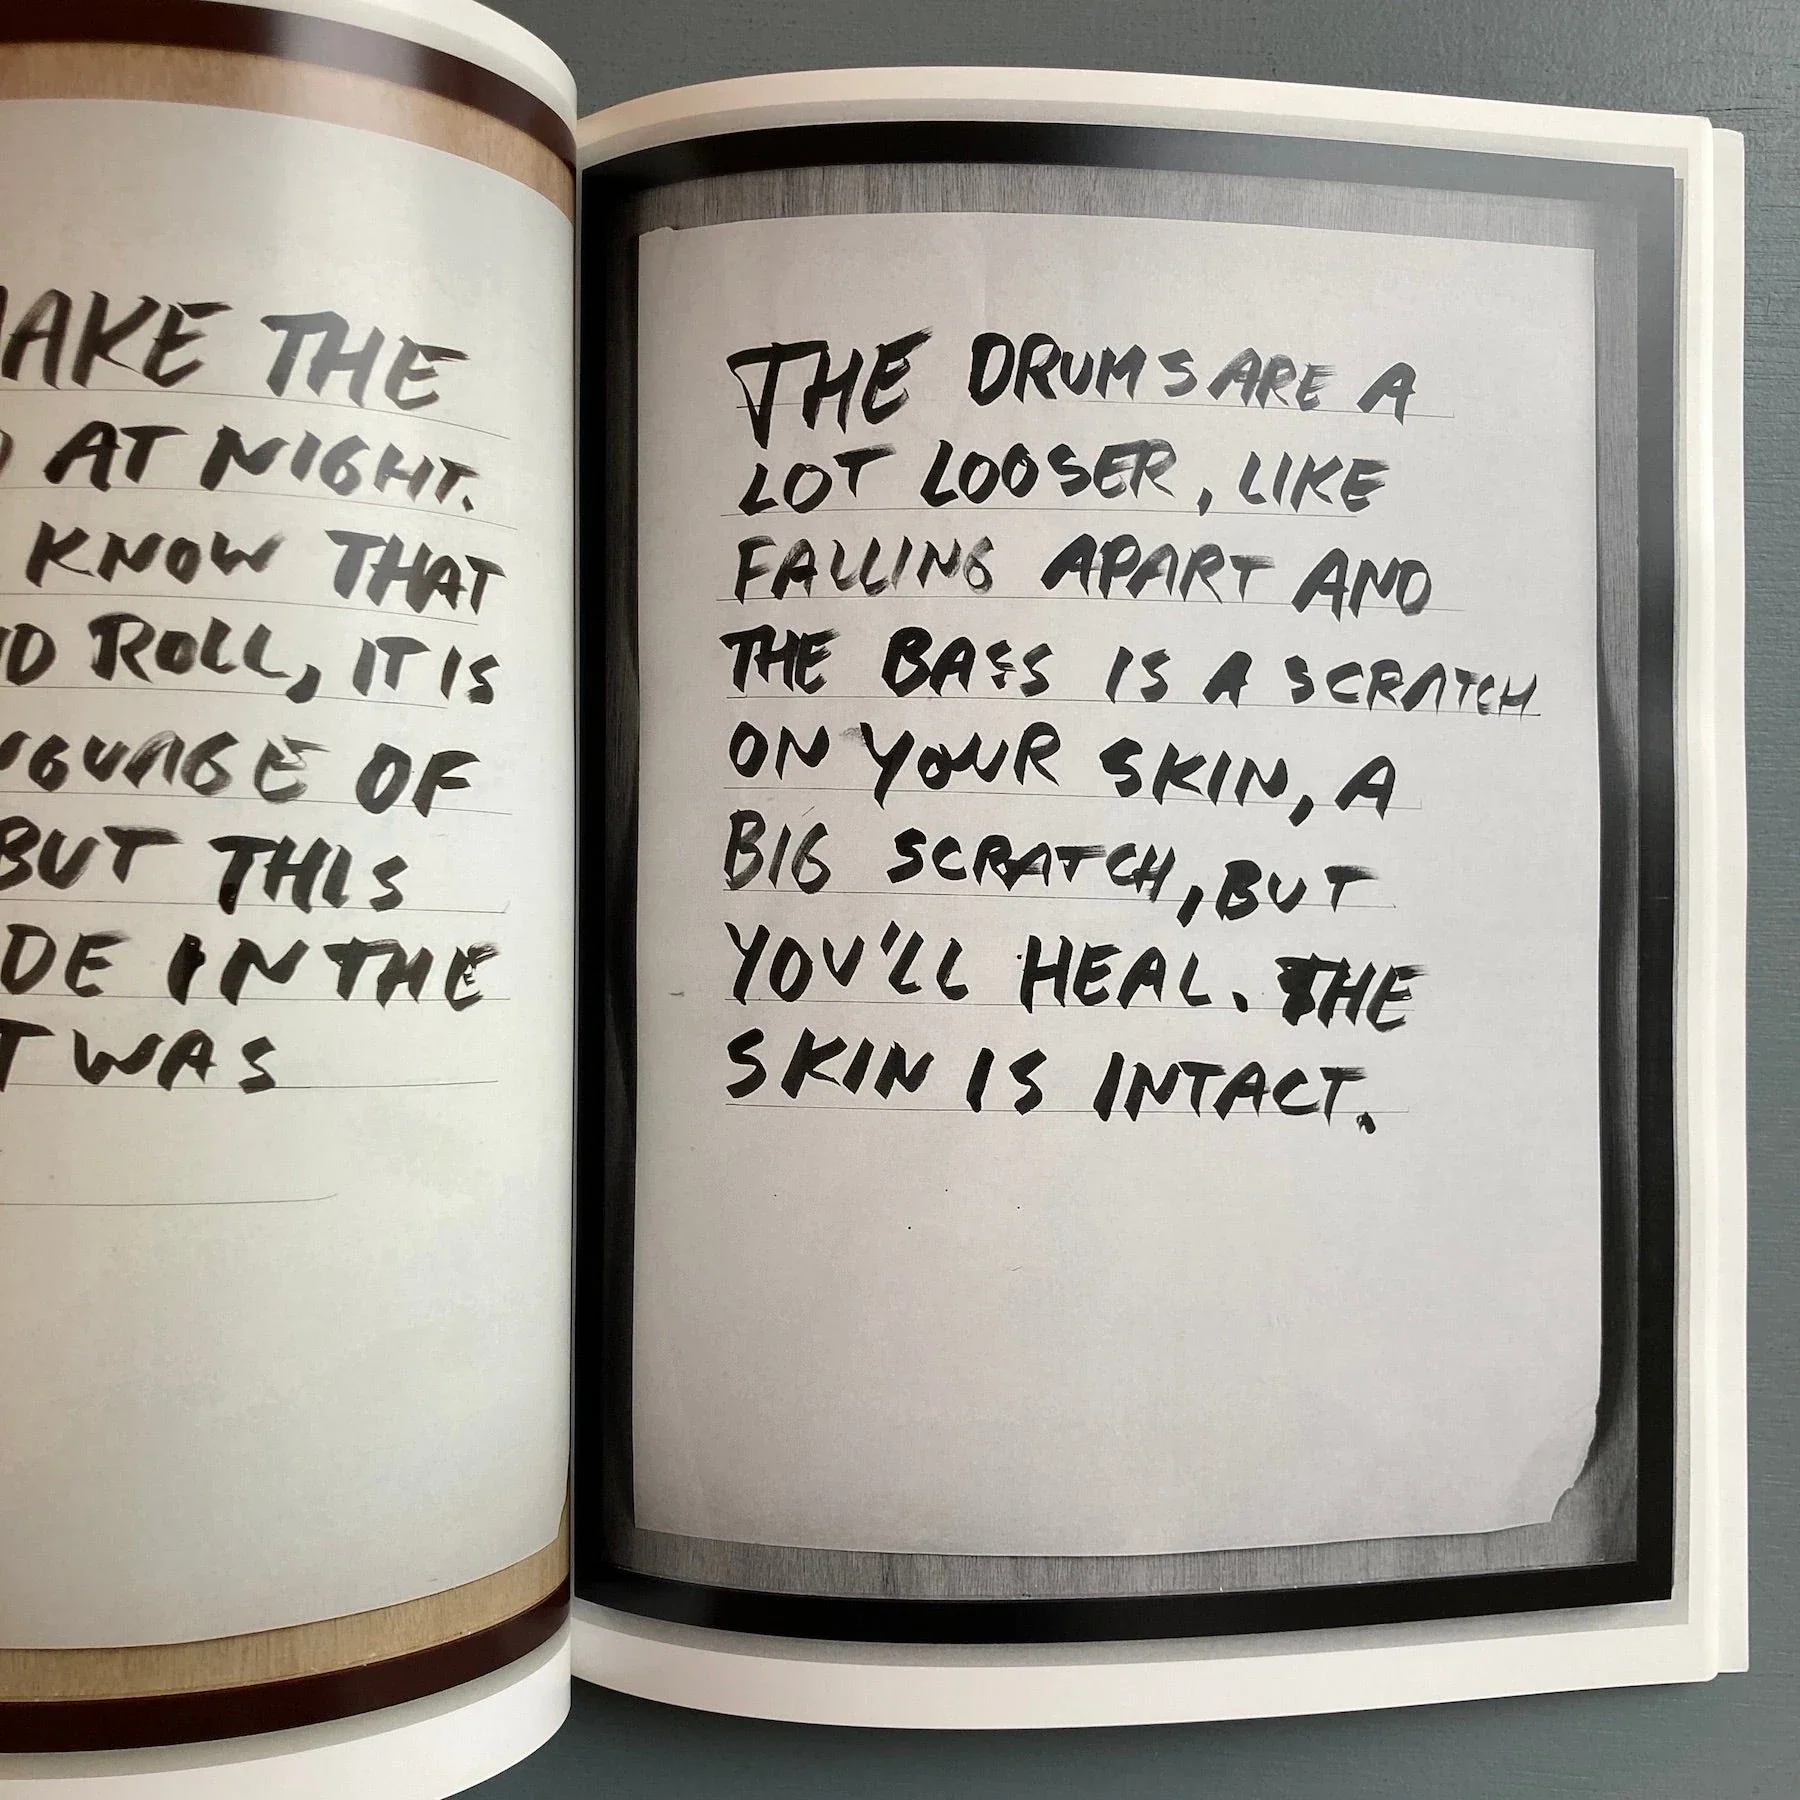 MAKE THE
AT NIGHT.
KNOW THAT
ROLL, IT IS
LANGUAGE OF
BUT THIS
IN THE
WAS
THE DRUMS ARE A
LOT LOOSER, LIKE
FALLING APART AND
THE BASS IS A SCRATCH
ON YOUR SKIN, A
BIG SCRATCH, BUT
YOU'LL HEAL. THE
SKIN IS INTACT.